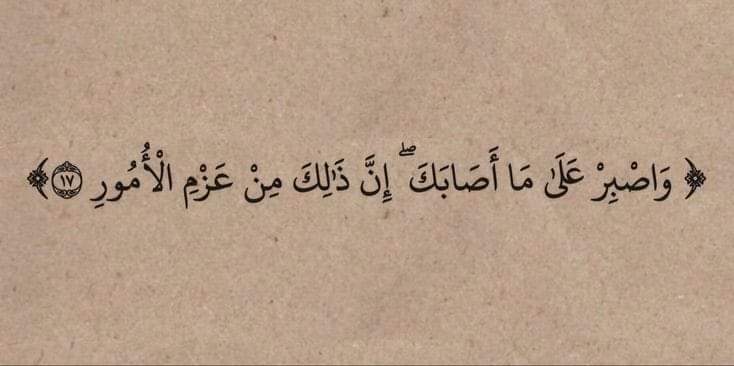 ﴿ وَاصْبِرْ عَلَىٰ مَا أَصَابَكَ ۖ إِنَّ ذَٰلِكَ مِنْ عَزْمِ الْأُمُورِ ١٧ ﴾